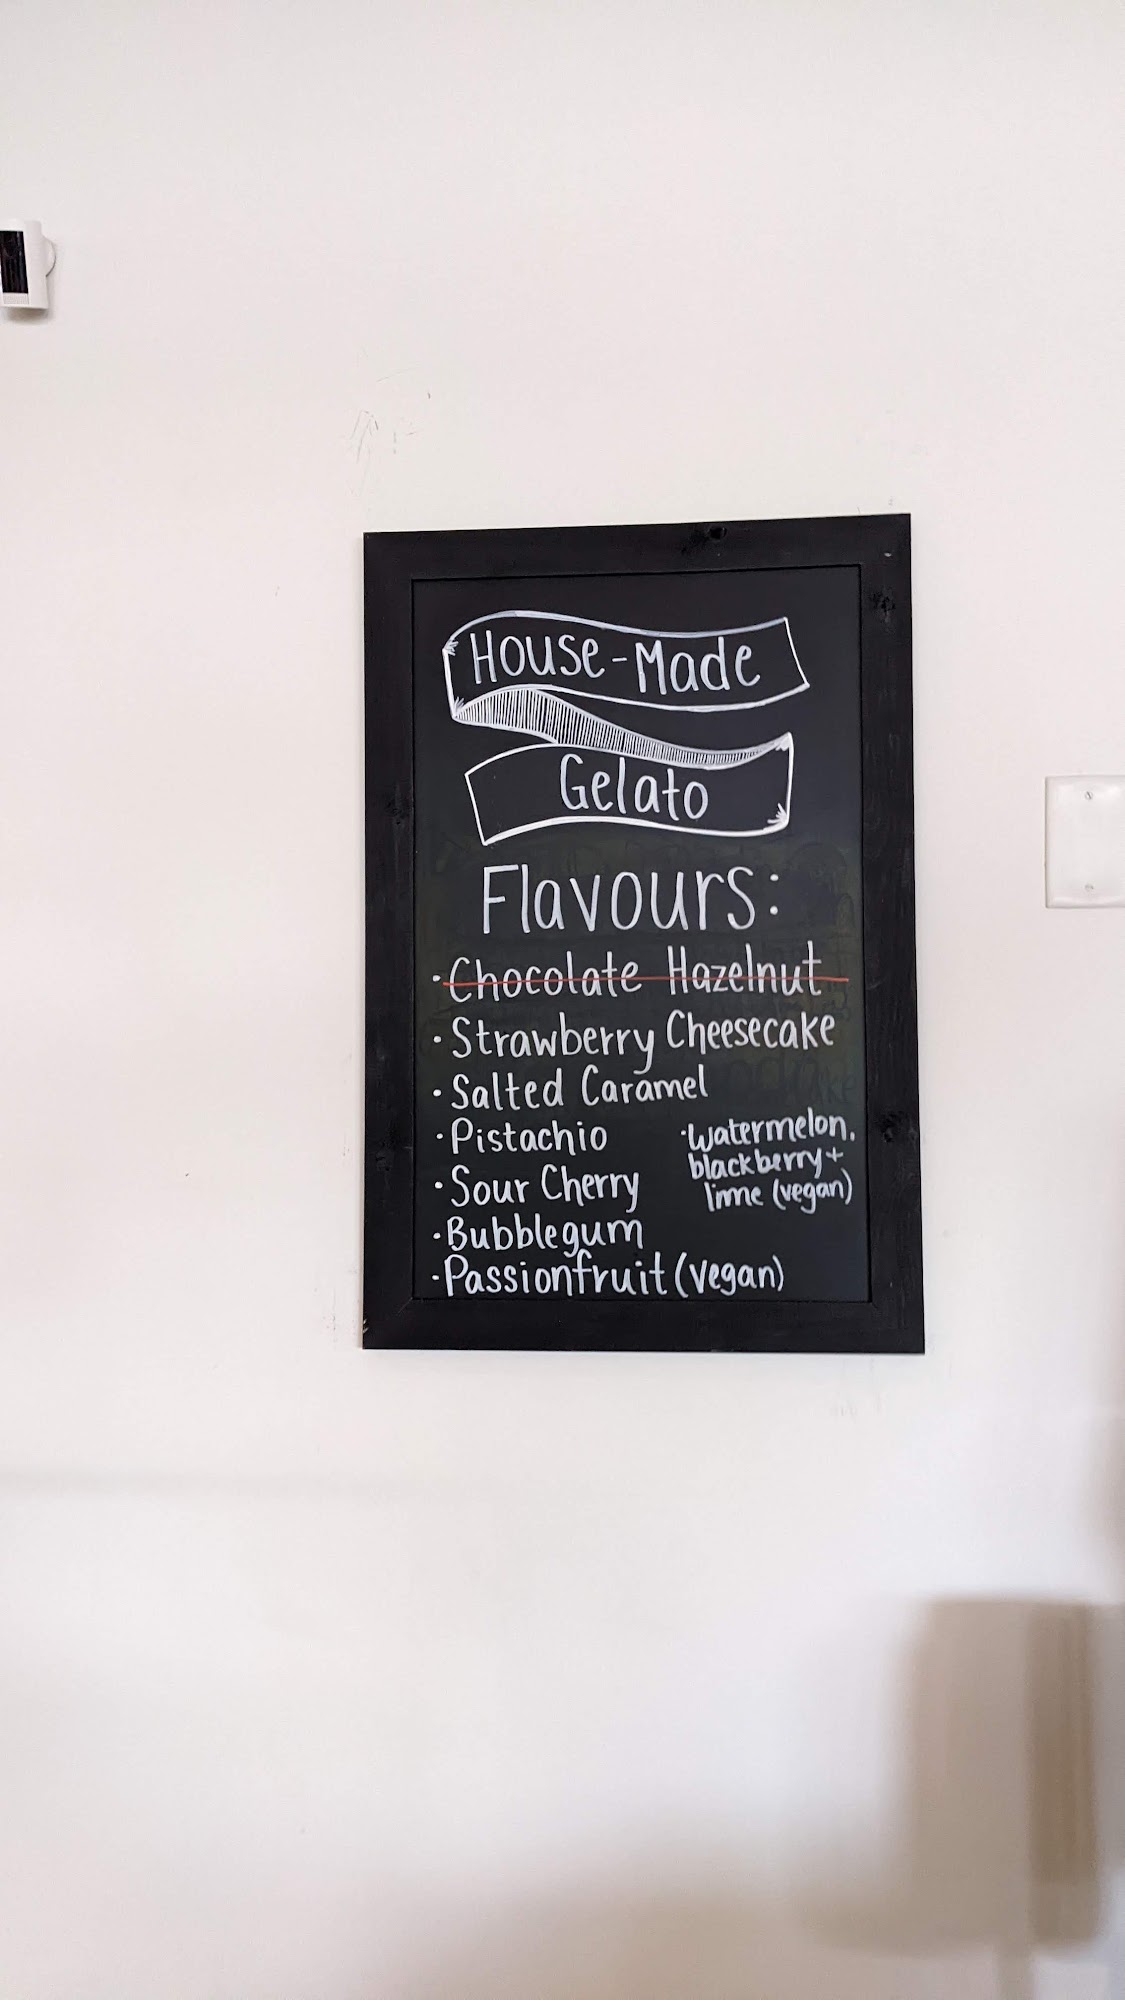 House-Made
Gelato
Flavours:
·Chocolate Hazelnut
·Strawberry Cheesecake
·Salted Caramel
·Pistachio
·Sour Cherry
·Bubblegum
·Passionfruit (vegan)
·Watermelon,
blackberry +
lime (vegan)